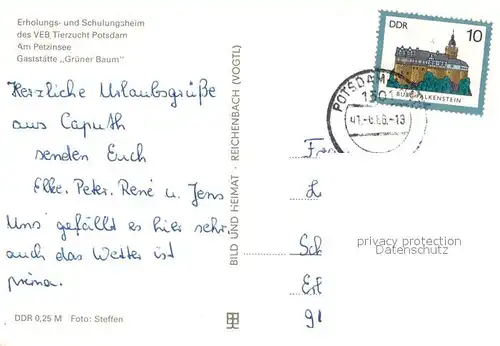 Erholungs- und Schulungsheim
des VEB Tierzucht Potsdam
Am Petzinsee
Gaststätte „Grüner Baum"
Herzliche Urlaubsgrüße
aus Caputh
senden Euch
Elke, Peter, René u. Jens
Uns gefällt es hier sehr,
auch das Wetter ist
prima.
DDR 0,25 M Foto: Steffen
BILD UND HEIMAT · REICHENBACH (VOGTL)
DDR
10
BURG FALKENSTEIN
POTSDAM
1501
Sch
91
privacy protection
Datenschutz